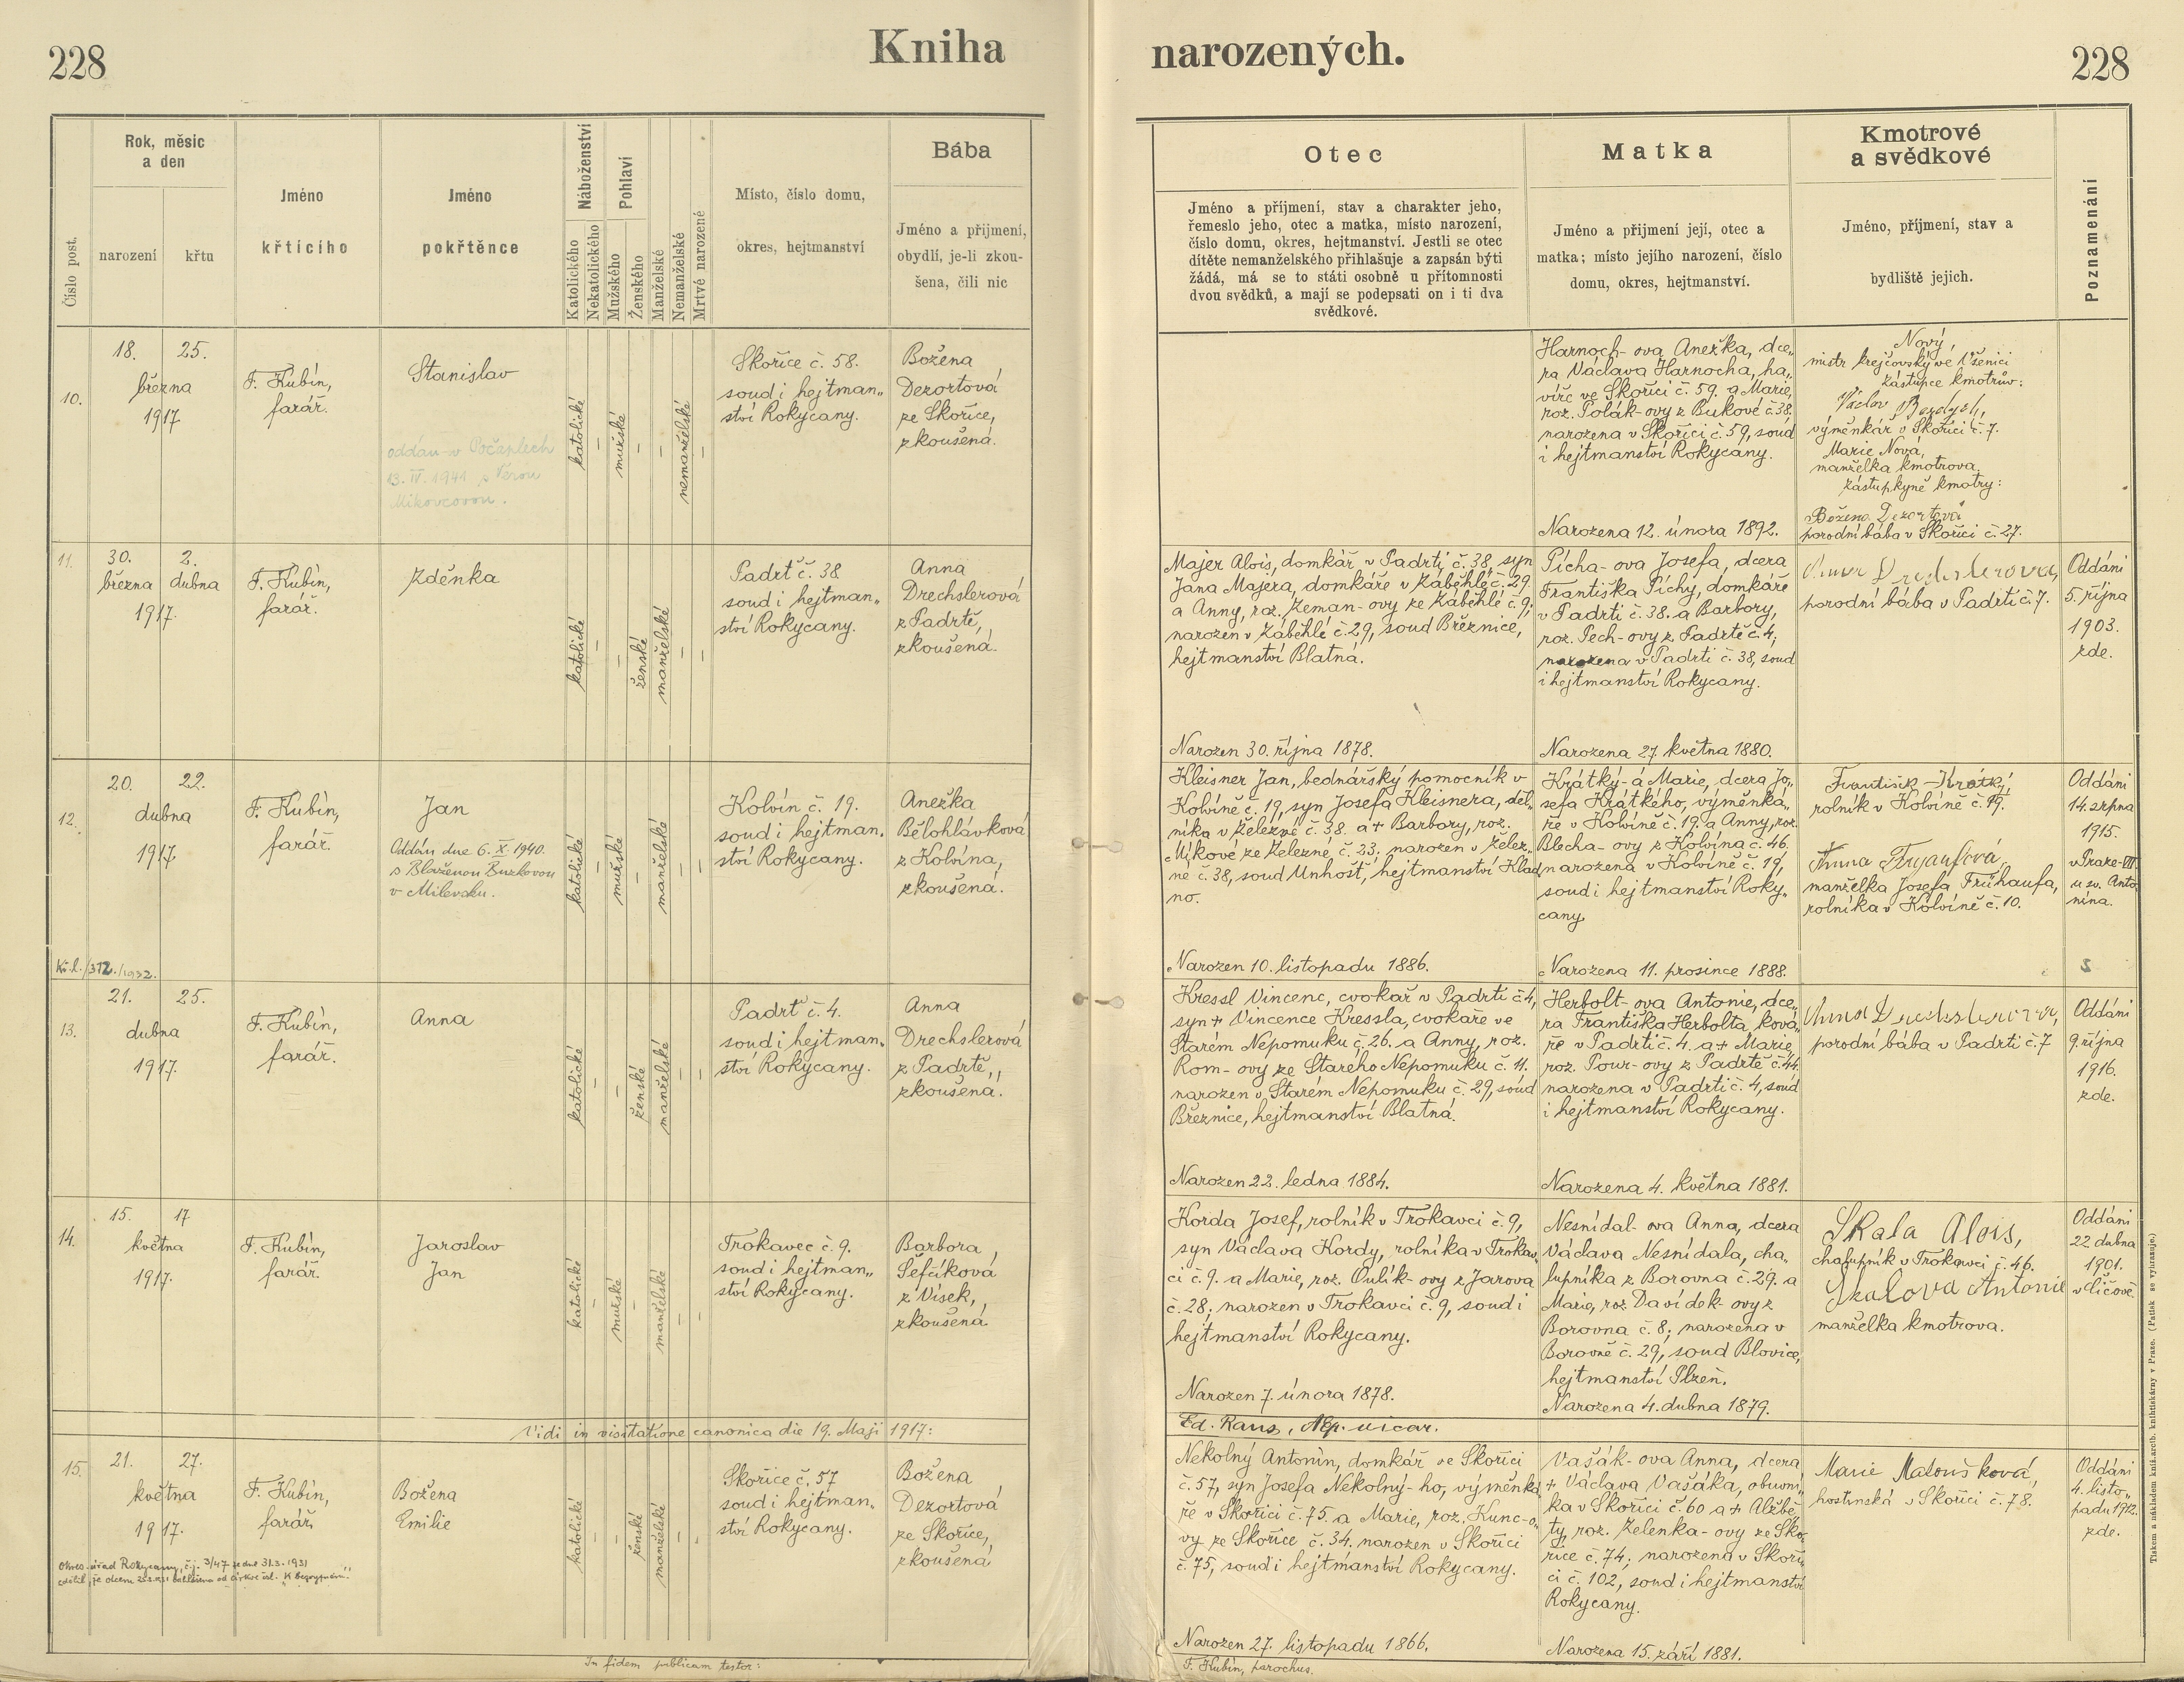 228
Kniha
narozených.
228
Číslo post.
Rok, měsíc
a den
narození
křtu
Jméno
křtícího
Jméno
pokřtěnce
Náboženství
Katolického
Nekatolického
Pohlaví
Mužského
Ženského
Manželské
Nemanželské
Mrtvé narozené
Místo, číslo domu,
okres, hejtmanství
Bába
Jméno a příjmení,
obydlí, je-li zkou-
šena, čili nic
Otec
Jméno a příjmení, stav a charakter jeho,
řemeslo jeho, otec a matka, místo narození,
číslo domu, okres, hejtmanství. Jestli se otec
dítěte nemanželského přihlašuje a zapsán býti
žádá, má se to státi osobně u přítomnosti
dvou svědků, a mají se podepsati on i ti dva
svědkové.
Matka
Jméno a přijmení její, otec a
matka; místo jejího narození, číslo
domu, okres, hejtmanství.
Kmotrové
a svědkové
Jméno, příjmení, stav a
bydliště jejich.
Poznamenání
10.
18. 25.
března
1917
F. Kubín,
farář.
Stanislav
oddán v Počaplech
13. IV. 1941 s Věrou
Mikovcovou.
katolické
–
mužské
–
–
nemanželské
–
Skořice č. 58.
soud i hejtman„
ství Rokycany.
Božena
Dezortová
ze Skořice,
zkoušená.
Harnoch-ova Anežka, dce„
ra Václava Harnocha, ha„
víře ve Skořici č. 59. a Marie,
roz. Polák-ovy z Bukové č. 38.
narozena v Skořici č. 59, soud
i hejtmanství Rokycany.
Narozena 12. února 1892.
Nový,
mistr krejčovský ve Všenici
zástupce kmotrův:
Václav Bezdych,
výměnkář v Skořici č. 7.
Marie Nová,
manželka kmotrova.
zástupkyně kmotry:
Božena Dezortová
porodní bába v Skořici č. 27.
11.
30. 2.
března dubna
1917.
F. Kubín,
farář.
Zděnka
katolické
–
–
ženské
manželské
–
–
Padrť č. 38
soud i hejtman„
ství Rokycany.
Anna
Drechslerová
z Padrtě,
zkoušená.
Majer Alois, domkář v Padrti č. 38, syn
Jana Majera, domkáře v Záběhlé č. 29.
a Anny, roz. Zeman-ovy ze Záběhlé č. 9;
narozen v Záběhlé č. 29, soud Březnice,
hejtmanství Blatná.
Narozen 30. října 1878.
Pícha-ova Josefa, dcera
Františka Píchy, domkáře
v Padrti č. 38. a Barbory,
roz. Pech-ovy z Padrtě č. 4;
narozena v Padrti č. 38, soud
i hejtmanství Rokycany.
Narozena 27. května 1880.
Anna Drechslerova,
porodní bába v Padrti č. 7.
Oddáni
5. října
1903.
zde.
12.
20. 22.
dubna
1917
F. Kubín,
farář.
Jan
Oddán dne 6. X. 1940.
s Blaženou Buzkovou
v Milevsku.
katolické
–
mužské
–
manželské
–
–
Kolvín č. 19.
soud i hejtman„
ství Rokycany.
Anežka
Bělohlávková
z Kolvína,
zkoušená.
Kř.l./312./1932.
Kleisner Jan, bednářský pomocník v
Kolvíně č. 19, syn Josefa Kleisnera, děl„
níka v Železné č. 38. a + Barbory, roz.
Mikové ze Železné č. 23; narozen v Želez„
né č. 38, soud Unhošť, hejtmanství Klad„
no.
Narozen 10. listopadu 1886.
Krátký-á Marie, dcera Jo„
sefa Krátkého, výměnká„
ře v Kolvíně č. 19. a Anny, roz.
Blecha-ovy z Kolvína č. 46.
narozena v Kolvíně č. 19,
soud i hejtmanství Roky„
cany.
Narozena 11. prosince 1888.
František Krátký,
rolník v Kolvíně č. 19.
Anna
manželka Josefa Frühaufa,
rolníka v Kolvíně č. 10.
Oddáni
14. srpna
1915.
v Praze-VII
u sv. Anto„
nína.
S
13.
21. 25.
dubna
1917.
F. Kubín,
farář.
Anna
katolické
–
–
ženské
manželské
–
–
Padrť č. 4.
soud i hejtman„
ství Rokycany.
Anna
Drechslerová
z Padrtě,
zkoušená.
Kressl Vincenc, cvokař v Padrti č. 4,
syn + Vincence Kressla, cvokaře ve
Starém Nepomuku č. 26. a Anny, roz.
Rom-ovy ze Starého Nepomuku č. 11.
narozen v Starém Nepomuku č. 29, soud
Březnice, hejtmanství Blatná.
Narozen 22. ledna 1884.
Herbolt-ova Antonie, dce„
ra Františka Herbolta, ková„
ře v Padrti č. 4. a + Marie
roz. Pour-ovy z Padrtě č. 44.
narozena v Padrti č. 4, soud
i hejtmanství Rokycany.
Narozena 4. května 1881.
Anna Drechslerova,
porodní bába v Padrti č. 7
Oddáni
9. října
1916.
zde.
14.
15. 17
května
1917.
F. Kubín,
farář.
Jaroslav
Jan
katolické
–
mužské
–
manželské
–
–
Trokavec č. 9.
soud i hejtman„
ství Rokycany.
Barbora
Šefčíková
z Vísek,
zkoušená
Korda Josef, rolník v Trokavci č. 9,
syn Václava Kordy, rolníka v Trokav„
ci č. 9. a Marie, roz. Oulík-ovy z Jarova
č. 28; narozen v Trokavci č. 9, soud i
hejtmanství Rokycany.
Narozen 7. února 1878.
Nesnídal-ova Anna, dcera
Václava Nesnídala, cha„
lupníka z Borovna č. 29. a
Marie, roz. Davídek-ovy z
Borovna č. 8; narozena v
Borovně č. 29, soud Blovice,
hejtmanství Plzeň.
Narozena 4. dubna 1879.
Skala Alois,
chalupník v Trokavci č. 46.
Skalova Antonie
manželka kmotrova.
Oddáni
22 dubna
1901.
v Číčově
Vidi in visitatione canonica die 19. Maji 1917:
Ed. Raus, Nep. vicar.
15.
21. 27.
května
1917.
F. Kubín,
farář.
Božena
Emilie
katolické
–
–
ženské
manželské
–
–
Skořice č. 57
soud i hejtman„
ství Rokycany.
Božena
Dezortová
ze Skořice,
zkoušená
Okres. úřad Rokycany, č.j. 3/47 ze dne 31.3.1931
Nekolný Antonín, domkář ve Skořici
č. 57, syn Josefa Nekolný-ho, výměnká„
ře v Skořici č. 75. a Marie, roz. Kunc-o„
vy ze Skořice č. 34. narozen v Skořici
č. 75, soud i hejtmanství Rokycany.
Narozen 27. listopadu 1866.
Vašák-ova Anna, dcera
+ Václava Vašáka, obuvní„
ka v Skořici č. 60 a + Alžbě„
ty, roz. Zelenka-ovy ze Sko„
řice č. 74; narozena v Skoři„
ci č. 102, soud i hejtmanství
Rokycany.
Narozena 15. září 1881.
Marie Matoušková,
hostinská v Skořici č. 78.
Oddáni
4. listo„
padu 1912.
zde.
In fidem publicam testor:
F. Kubín, parochus.
Tiskem a nákladem kníž. arcib. knihtiskárny v Praze. (Patisk se vyhrazuje.)